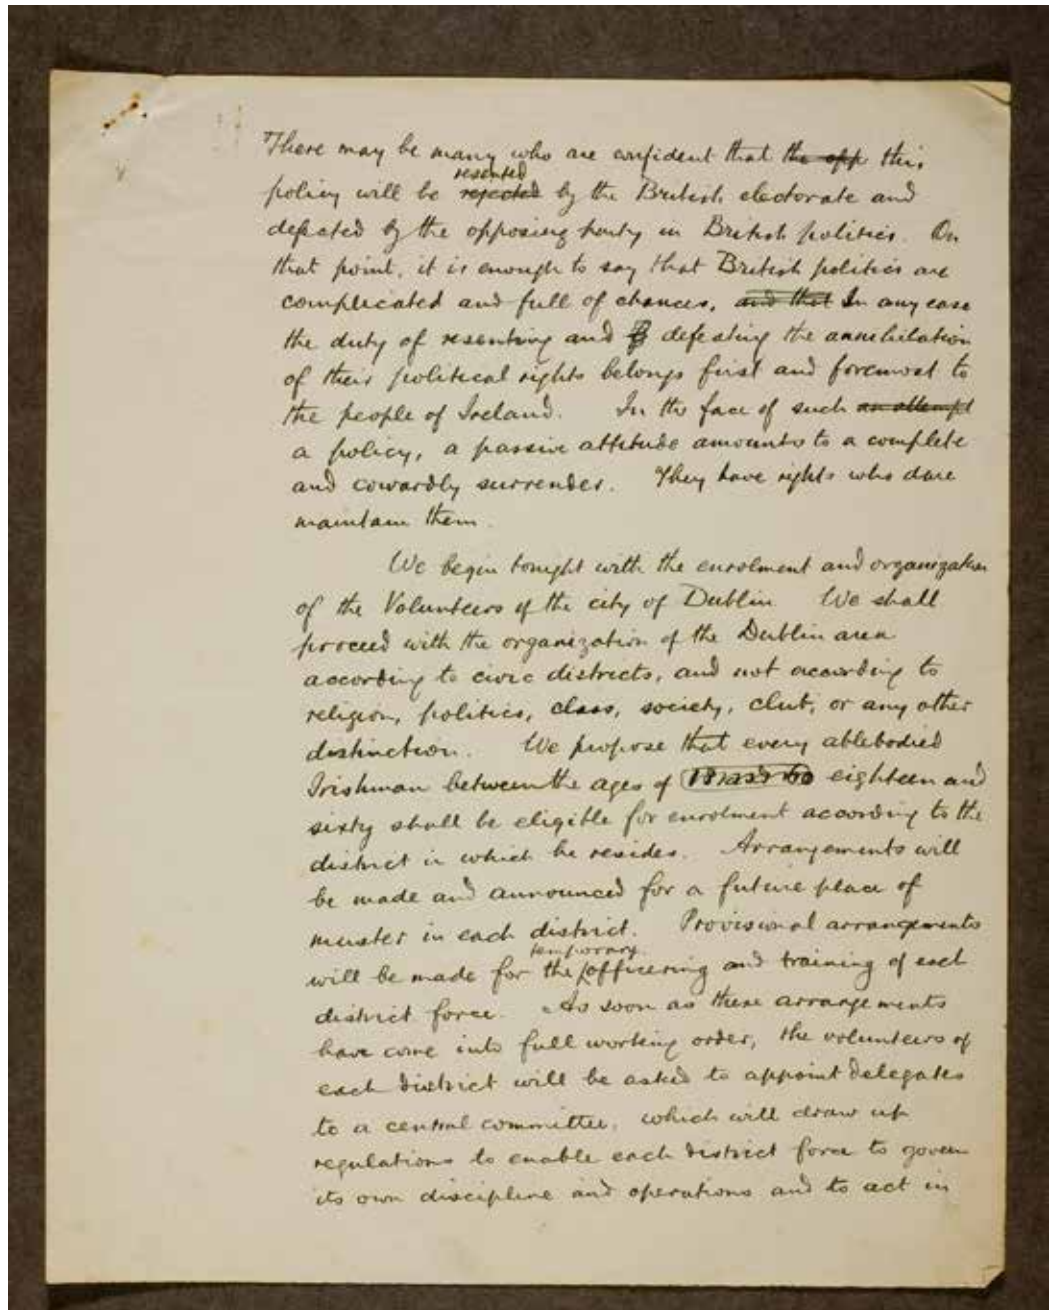 There may be many who are confident that the opp this
resented
policy will be rejected by the British electorate and
defeated by the opposing party in British politics. On
that point, it is enough to say that British politics are
complicated and full of chances, and that In any case
the duty of resenting and defeating the annihilation
of their political rights belongs first and foremost to
the people of Ireland. In the face of such an attempt
a policy, a passive attitude amounts to a complete
and cowardly surrender. They have rights who dare
maintain them.
We begin tonight with the enrolment and organization
of the Volunteers of the city of Dublin We shall
proceed with the organization of the Dublin area
according to civic districts, and not according to
religion, politics, class, society, club, or any other
distinction. We propose that every ablebodied
Irishman between the ages of 18 and 60 eighteen and
sixty shall be eligible for enrolment according to the
district in which he resides. Arrangements will
be made and announced for a future place of
muster in each district. Provisional arrangements
temporary
will be made for the officering and training of each
district force. As soon as these arrangements
have come into full working order, the volunteers of
each district will be asked to appoint delegates
to a central committee, which will draw up
regulations to enable each district force to govern
its own discipline and operations and to act in